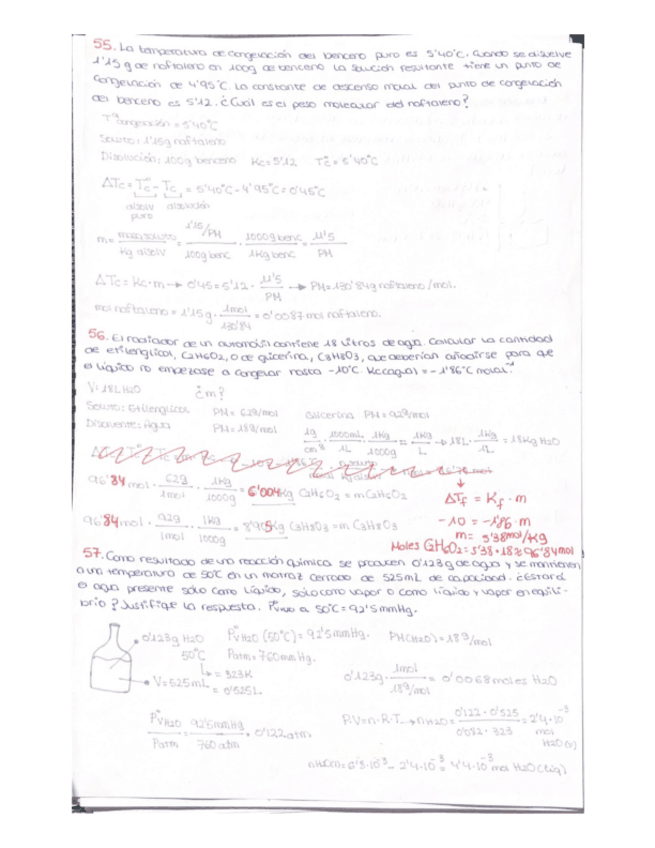 55. La temperatura de congelación del benceno puro es 5'40°C. Cuando se disuelve
1'15 g de naftaleno en 100g de benceno la solución resultante tiene un punto de
congelación de 4'95°C. La constante de descenso molal del punto de congelación
del benceno es 5'12. ¿Cuál es el peso molecular del naftaleno?
Tª congelación = 5'40°C
Soluto: 1'15g naftaleno
Disolución: 100g benceno Kc = 5'12 T°c = 5'40°C
ΔTc = T°c - Tc = 5'40°C - 4'95°C = 0'45°C
disolv puro disolución
m = masa soluto / kg disolv = 1'15/PM / 100g benc · 1000g benc / 1kg benc = 11'5 / PM
ΔTc = Kc · m → 0'45 = 5'12 · 11'5 / PM → PM = 130'84g naftaleno/mol.
mol naftaleno = 1'15g · 1mol / 130'84 = 0'0087 mol naftaleno.
56. El radiador de un automóvil contiene 18 litros de agua. Calcular la cantidad
de etilenglicol, C2H6O2, o de glicerina, C3H8O3, que deberían añadirse para que
el líquido no empezase a congelar hasta -10°C. Kc(agua) = -1'86°C molal⁻¹
V = 18L H2O ¿m?
Soluto: Etilenglicol PM = 62g/mol Glicerina PM = 92g/mol
Disolvente: Agua PM = 18g/mol
1g / cm³ · 1000mL / 1L · 1kg / 1000g = 1kg / L → 18L · 1kg / 1L = 18kg H2O
96'84 mol · 62g / 1mol · 1kg / 1000g = 6'004kg C2H6O2 = m C2H6O2
ΔTf = Kf · m
96'84 mol · 92g / 1mol · 1kg / 1000g = 8'905kg C3H8O3 = m C3H8O3
-10 = -1'86 · m
m = 5'38mol/kg
Moles C2H6O2 = 5'38 · 18 ≈ 96'84 mol
57. Como resultado de una reacción química se producen 0'123g de agua y se mantienen
a una temperatura de 50°C en un matraz cerrado de 525mL de capacidad. ¿Estará
el agua presente sólo como líquido, sólo como vapor o como líquido y vapor en equili-
brio? Justifique la respuesta. P°v H2O a 50°C = 92'5mmHg.
0'123g H2O P°v H2O (50°C) = 92'5mmHg. PM(H2O) = 18g/mol
50°C Patm = 760mmHg.
↳ = 323K
V = 525mL = 0'525L
0'123g · 1mol / 18g/mol = 0'0068 moles H2O
P°v H2O / Patm = 92'5mmHg / 760 atm = 0'122atm
P·V = n·R·T → nH2O = 0'122 · 0'525 / 0'082 · 323 = 2'4·10⁻³ mol H2O(v)
6'8·10⁻³ - 2'4·10⁻³ = 4'4·10⁻³ mol H2O (líq)